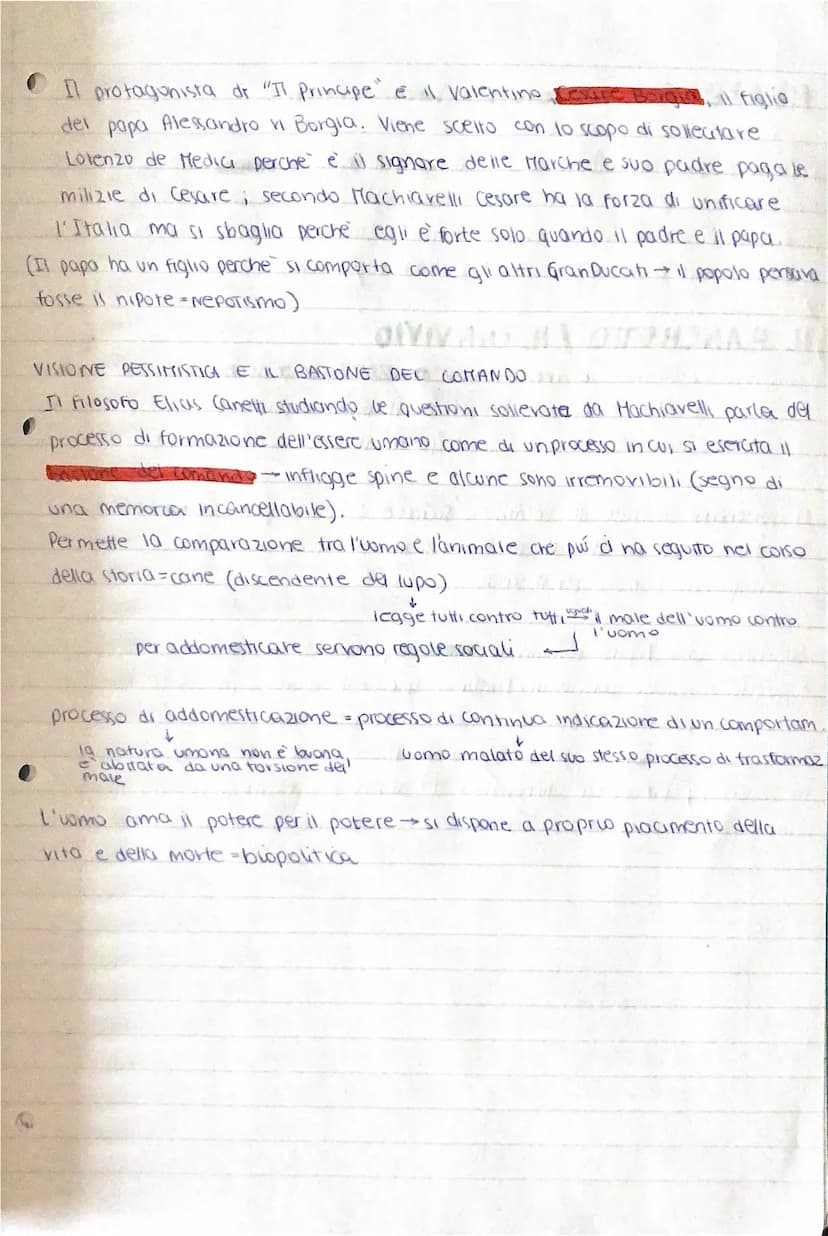 Il protagonista di "Il Principe" è il Valentino, Cesare Borgia, il figlio
del papa Alessandro VI Borgia. Viene scelto con lo scopo di sollecitare
Lorenzo de Medici perchè è il signore delle Marche e suo padre paga le
milizie di Cesare; secondo Machiavelli Cesare ha la forza di unificare
l'Italia ma si sbaglia perchè egli è forte solo quando il padre è il papa.
(Il papa ha un figlio perchè si comporta come gli altri GranDucati → il popolo pensava
fosse il nipote = NEPOTISMO)
VISIONE PESSIMISTICA E IL BASTONE DEL COMANDO
Il filosofo Elias Canetti studiando le questioni sollevate da Machiavelli, parla del
processo di formazione dell'essere umano come di un processo in cui si esercita il
bastone del comando → infligge spine e alcune sono irremovibili (segno di
una memoria incancellabile).
Permette la comparazione tra l'uomo e l'animale che più ci ha seguito nel corso
della storia = cane (discendente del lupo)
↓
legge tutti contro tutti → il male dell'uomo contro
l'uomo
per addomesticare servono regole sociali ←
processo di addomesticazione = processo di continua indicazione di un comportam.
↓ ↓
la natura umana non è buona, uomo malato del suo stesso processo di trasformaz
è abitata da una torsione del
male
L'uomo ama il potere per il potere → si dispone a proprio piacimento della
vita e della morte = biopolitica